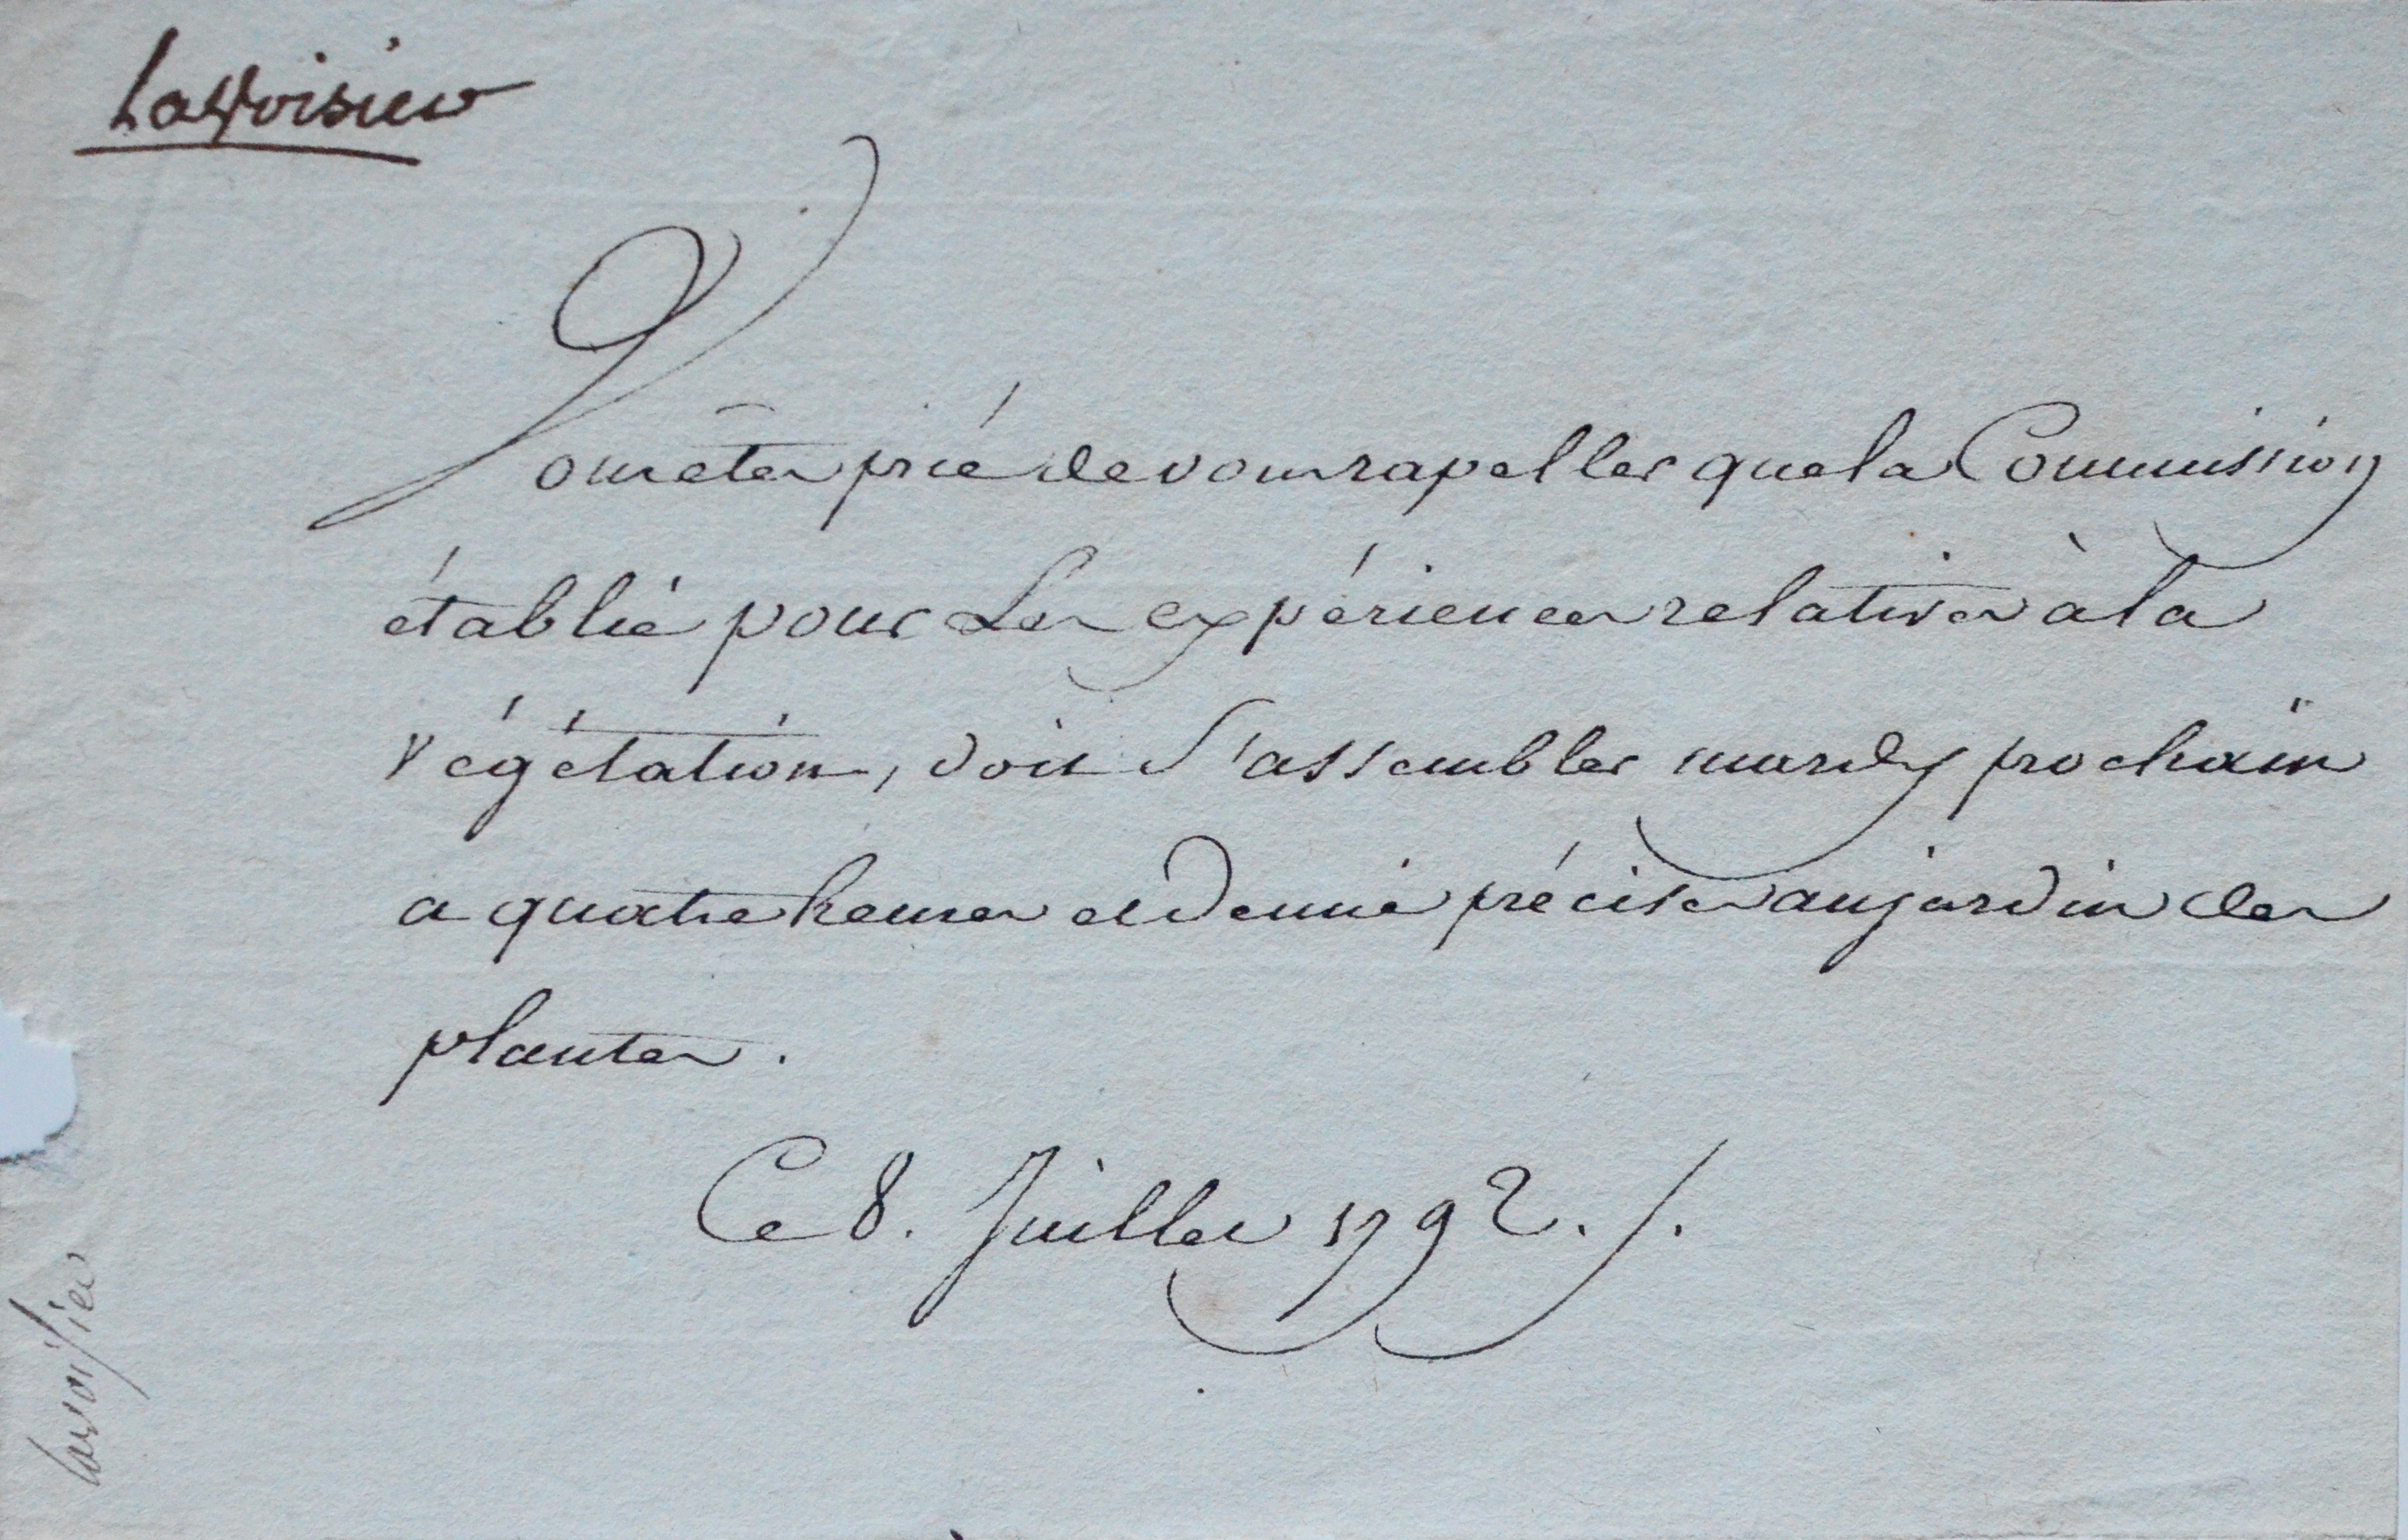 Lavoisier
Vous êtes prié de vous rapeller que la Commission
établie pour Les expériences relatives à la
végétation, doit s'assembler mardy prochain
a quatre heures et demie précises au jardin des
plantes.
Ce 8. Juillet 1792. /.
Lavoisier